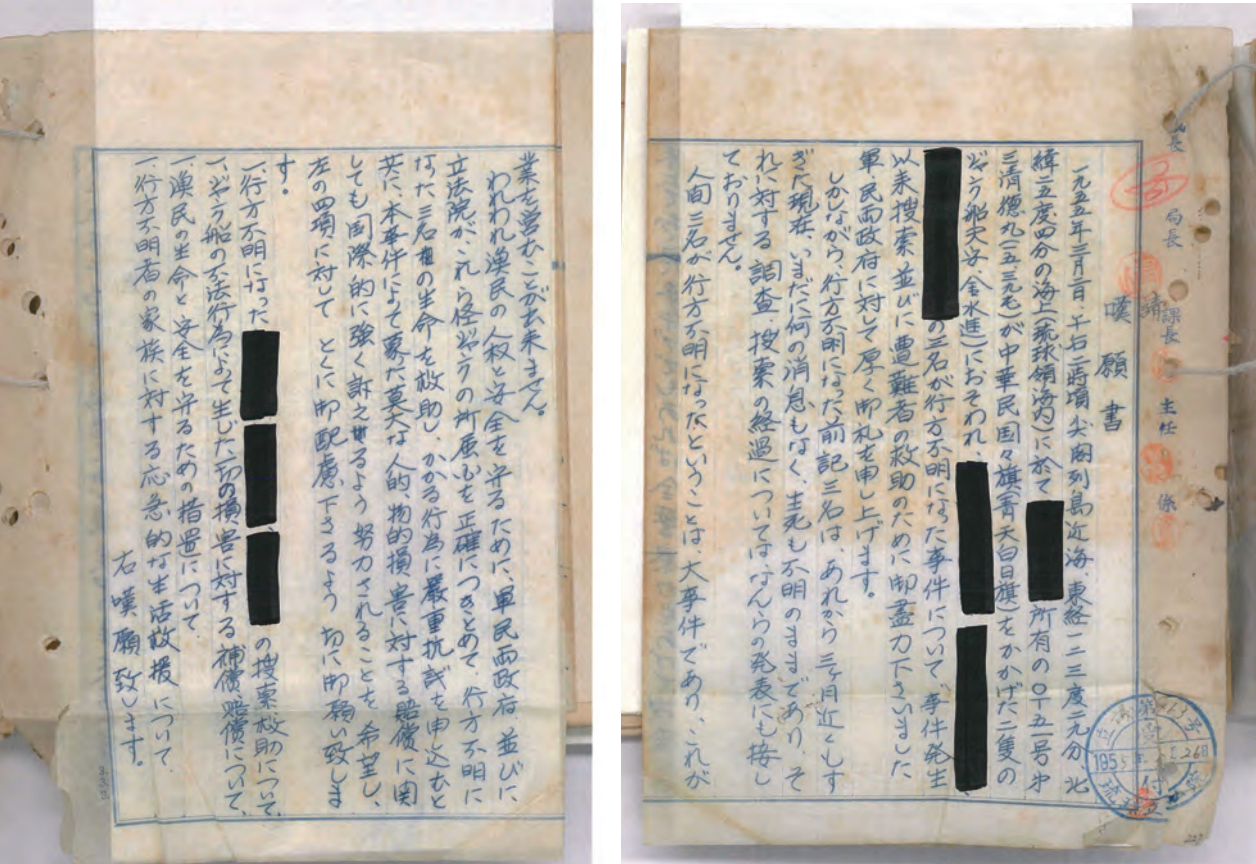 長
局長
課長
主任
係
嘆願書
一九五五年三月二日、午后二時頃尖閣列島近海、東経一二三度二九分 北
緯二五度四分の海上(琉球領海内)に於て 所有の〇一五一号 才
三清徳丸(一五三九屯)が中華民国々旗(青天白日旗)をかかげた二隻の
ジャンク船大安 金水進)におそわれ、
の三名が行方不明になった事件について、事件発生
以来捜索並びに遭難者の救助のために御盡力下さいました
軍民両政府に対して厚く御礼を申し上げます。
しかしながら行方不明になった前記三名は、あれから三ヶ月近くもす
ぎた現在、いまだに何の消息もなく、生死も不明のままであり、そ
れに対する調査、捜索の経過については、なんらの発表にも接し
ておりません。
人間三名が行方不明になったということは、大事件であり、これが
業を営むことが出来ません。
われわれ漁民の人权と安全を守るために、軍民両政府、並びに
立法院が、これら怪ジャンクの所属を正確につきとめて、行方不明に
なった三名の生命を救助し、かかる行為に厳重抗議を申し込むと
共に、本事件によって蒙った莫大な人的、物的損害に対する賠償に関
しても国際的に強く訴えるよう努力されることを希望し、
左の四項に対して とくに御配慮下さるよう 切に御願い致しま
す。
一、行方不明になった の捜索救助について、
一、ジャンク船の不法行為によって生じた一切の損害に対する補償、賠償について、
一、漁民の生命と安全を守るための措置について、
一、行方不明者の家族に対する応急的な生活救援について、
右嘆願致します。